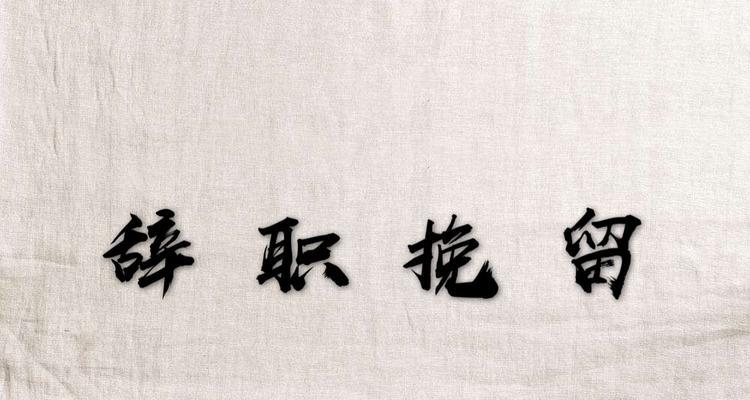 辞职挽留